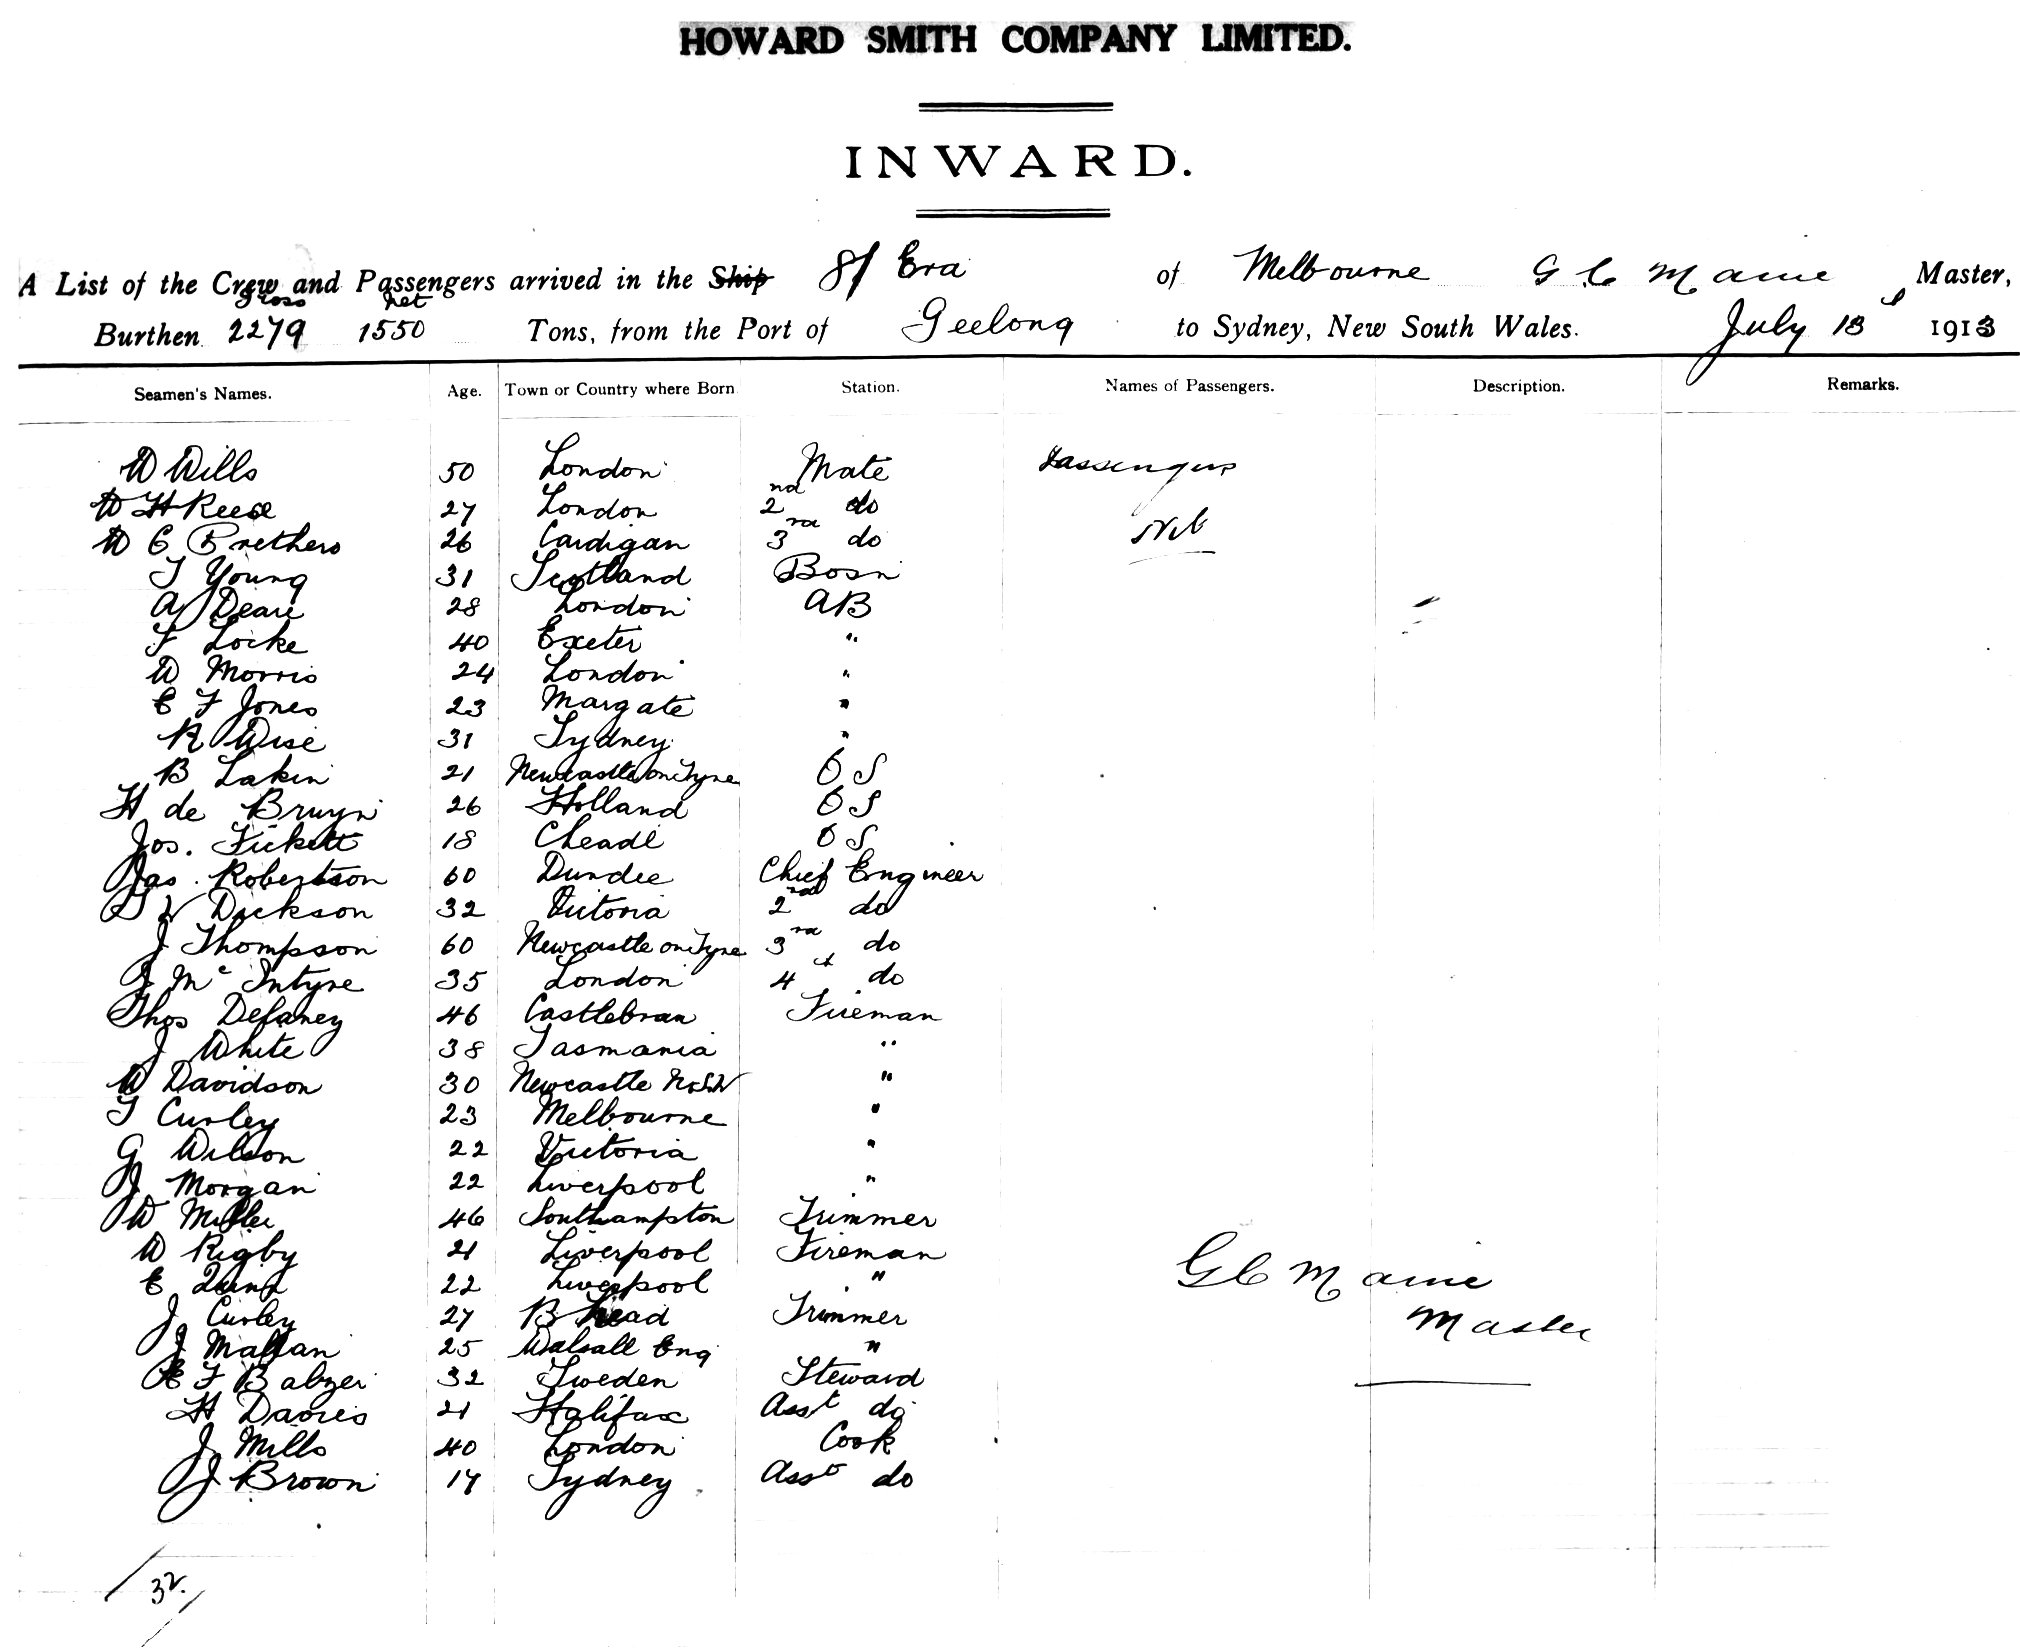 HOWARD SMITH COMPANY LIMITED.
INWARD.
A List of the Crew and Passengers arrived in the Ship S/S Era of Melbourne G C Maine Master,
gross net
Burthen 2279 1550 Tons, from the Port of Geelong to Sydney, New South Wales. July 18 1913
Seamen's Names. Age. Town or Country where Born Station. Names of Passengers. Description. Remarks.
W Wills 50 London Mate Passengers
W H Reese 27 London 2nd do
W C Brethers 26 Cardigan 3rd do Nil
T Young 31 Scotland Bosn
A Deare 28 London AB
F Locke 40 Exeter "
W Morris 24 London "
E F Jones 23 Margate "
R Wise 31 Sydney "
B Lakin 21 Newcastle on Tyne O S
H de Bruyn 26 Holland O S
Jos. Fickett 18 Cheadl O S
Jas. Robertson 60 Dundee Chief Engineer
Dickson 32 Victoria 2nd do
J Thompson 60 Newcastle on Tyne 3rd do
J McIntyre 35 London 4th do
Thos Delaney 46 Castlebran Fireman
J White 38 Tasmania "
W Davidson 30 Newcastle N.S.W "
T Curley 23 Melbourne "
G Wilson 22 Victoria "
J Morgan 22 Liverpool "
W Miller 46 Southampton Trimmer
W Rigby 21 Liverpool Fireman
E Quinn 22 Liverpool "
J Curley 27 B head Trimmer
J Mallan 25 Walsall Eng "
E F Balzer 32 Sweden Steward
H Davies 21 Halifax Asst do
J Mills 40 London Cook
J Brown 17 Sydney Asst do
G C Maine
Master
32.